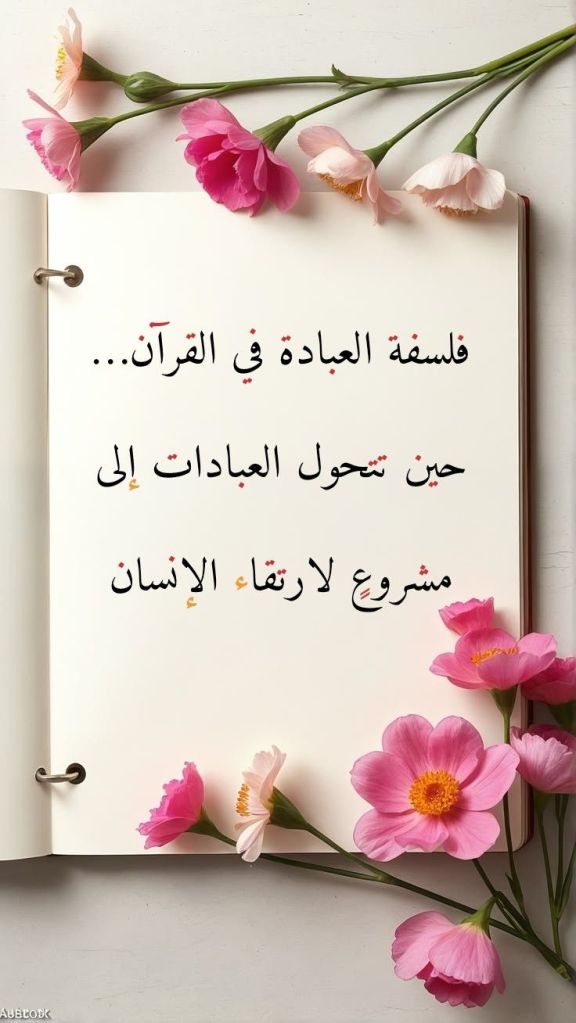 فلسفة العبادة في القرآن...
حين تتحول العبادات إلى
مشروعٍ لارتقاء الإنسان